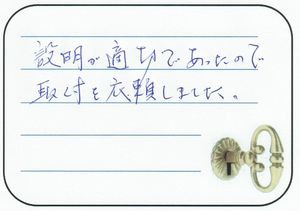 説明が適切であったので
取付を依頼しました。